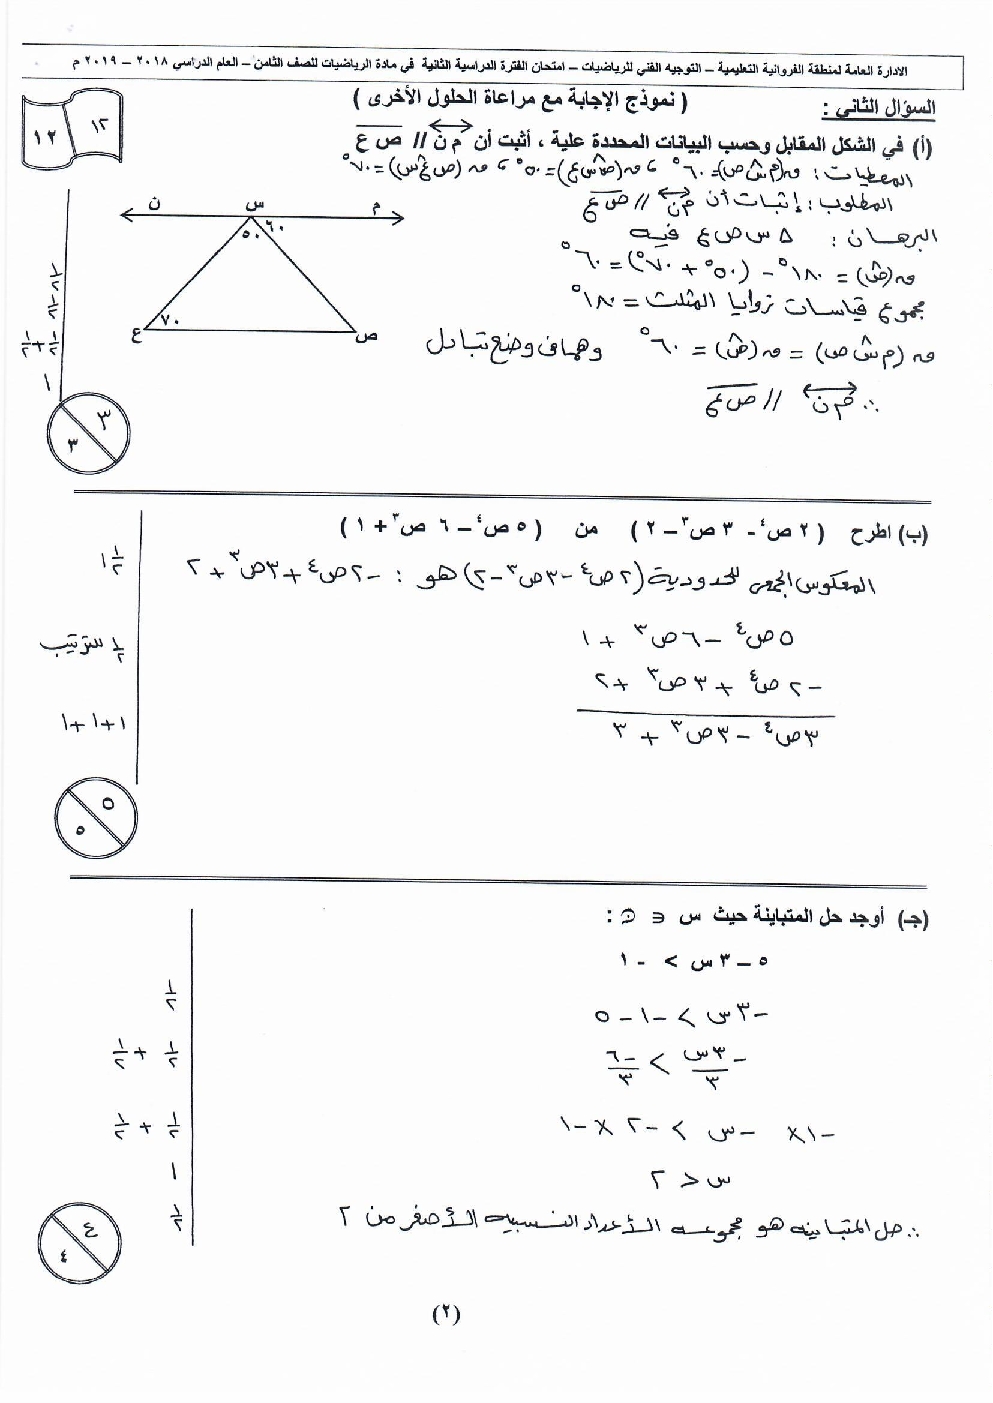 الادارة العامة لمنطقة الفروانية التعليمية – التوجيه الفني للرياضيات – امتحان الفترة الدراسية الثانية في مادة الرياضيات للصف الثامن – العام الدراسي ٢٠١٨ – ٢٠١٩ م
السؤال الثاني : ( نموذج الإجابة مع مراعاة الحلول الأخرى )
١٢
١٢
(أ) في الشكل المقابل وحسب البيانات المحددة علية ، أثبت أن م ن // ص ع
المعطيات : ق(م س ص) = ٦٠° ، ق(ص س ع) = ٥٠° ، ق(ص ع س) = ٧٠°
المطلوب : إثبات أن م ن // ص ع
البرهان : △ س ص ع فيه
ق(ص) = ١٨٠° – (٥٠° + ٧٠°) = ٦٠°
مجموع قياسات زوايا المثلث = ١٨٠°
ق(م س ص) = ق(ص) = ٦٠° وهما في وضع تبادل
∴ م ن // ص ع
م س ن
٦٠ ٥٠
٧٠
ص ع
١/٢
١/٢
١/٢ + ١/٢
١
٣
٣
(ب) اطرح ( ٢ ص٤ - ٣ ص٣ – ٢ ) من ( ٥ ص٤ – ٦ ص٣ + ١ )
المعكوس الجمعي للحدودية (٢ ص٤ – ٣ص٣ – ٢) هو : – ٢ص٤ + ٣ص٣ + ٢
٥ص٤ – ٦ص٣ + ١
– ٢ ص٤ + ٣ص٣ + ٢
٣ص٤ – ٣ص٣ + ٣
١ ١/٢
١/٢ للترتيب
١+١+١
٥
٥
(جـ) أوجد حل المتباينة حيث س ∈ ن :
٥ – ٣ س > - ١
– ٣س > – ١ – ٥
– ٣س/٣ > – ٦/٣
– ١× – س > – ٢ × – ١
س < ٢
∴ حل المتباينه هو مجموعه الأعداد النسبيه الأصغر من ٢
١/٢
١/٢ + ١/٢
١/٢ + ١/٢
١
١/٢
٤
٤
(٢)